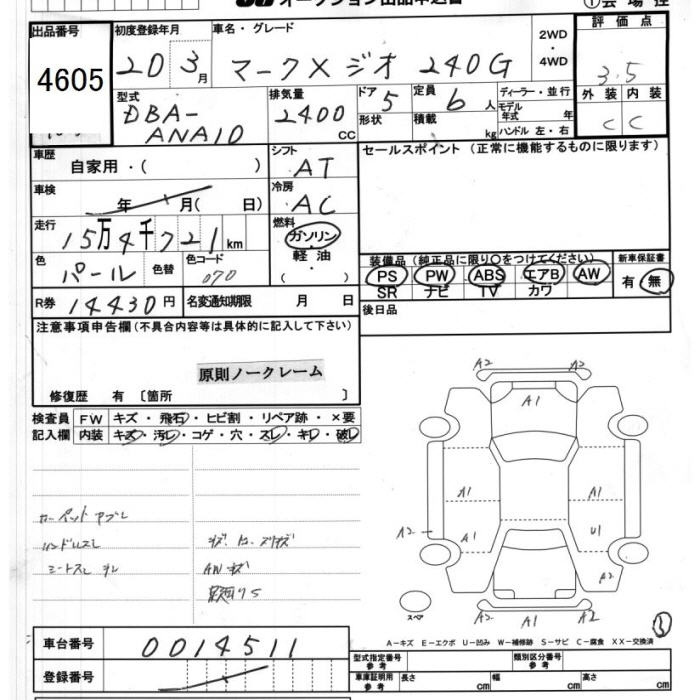 オークション出品申込書
①会場控
出品番号 初度登録年月 車名・グレード 2WD・4WD 評価点
4605
20 3月 マークX ジオ 240G
3.5
型式 排気量 ドア 定員 ディーラー・並行 外装 内装
DBA-ANA10 2400 CC 5 6人 モデル年式 年
形状 積載 kg ハンドル 左・右 C C
車歴 シフト セールスポイント (正常に機能するものに限ります)
自家用・( ) AT
車検 冷房
年 月( 日) AC
走行 燃料
15万4千721km ガソリン・軽油・( )
装備品(純正品に限り○をつけてください) 新車保証書
色 パール 色替 色コード 070
PS PW ABS エアB AW 有・無
SR ナビ TV カワ
R券 14430円 名変通知期限 月 日 後日品
注意事項申告欄(不具合内容等は具体的に記入して下さい)
原則ノークレーム
修復歴 有〔箇所 〕
検査員 FW キズ・飛石・ヒビ割・リペア跡・×要
記入欄 内装 キズ・汚レ・コゲ・穴・スレ・キレ・破レ
A2 A2
A1
A1 A1
A2 A1 U1
A2
スペア A2 A1 A2
カーペット
AWキズ
A−キズ E−エクボ U−凹み W−補修跡 S−サビ C−腐食 XX−交換済
車台番号 0014511
型式指定番号 参考 類別区分番号 参考
登録番号
車庫証明用 参考 長さ cm 幅 cm 高さ cm